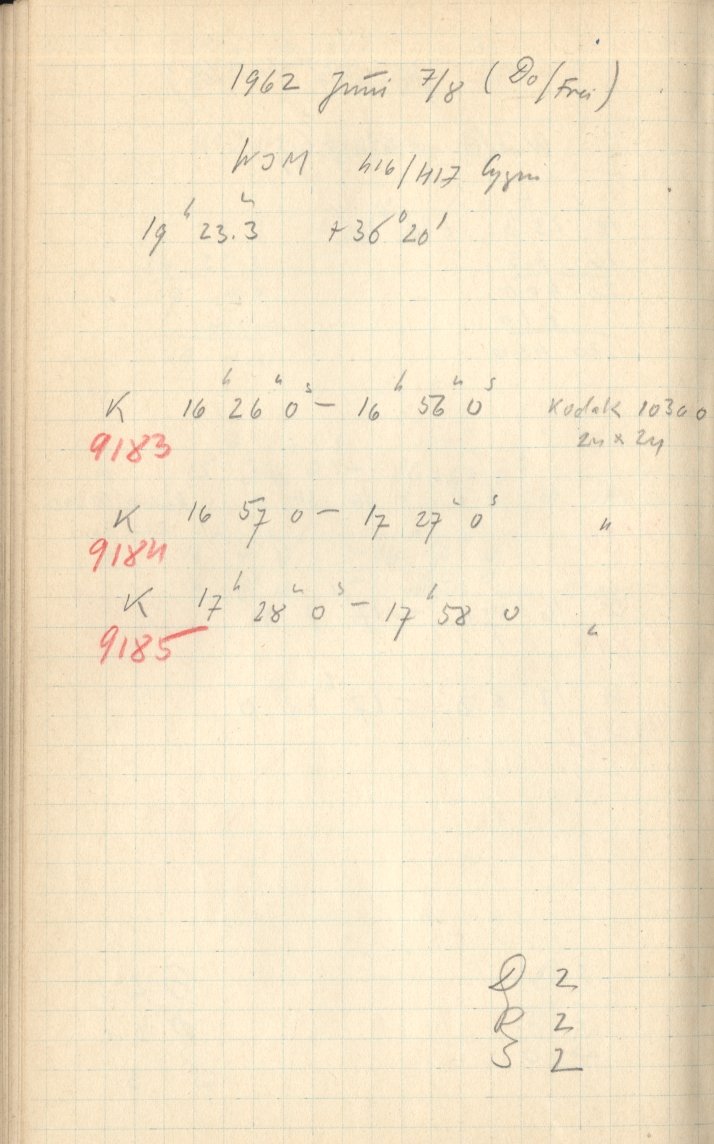 1962 Juni 7/8 (Do/Frei)
416/417 Cygni
19h 23.m3 +36°20'
K 16h 26m 0s – 16h 56m 0s Kodak 103a0
9183 24 x 24
K 16 57 0 – 17 27m 0s "
9184
K 17h 28m 0s – 17h 58 0 "
9185
D 2
P 2
S 2